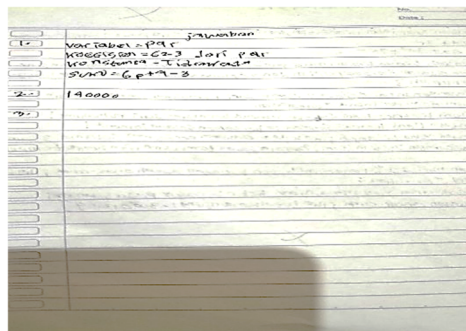 No.
Date:
jawaban
1. Variabel = par
Koefisien = 62-3 dari par
Konstanta = Tidak ada
suku = 6p+9-3
2. 140000
3.